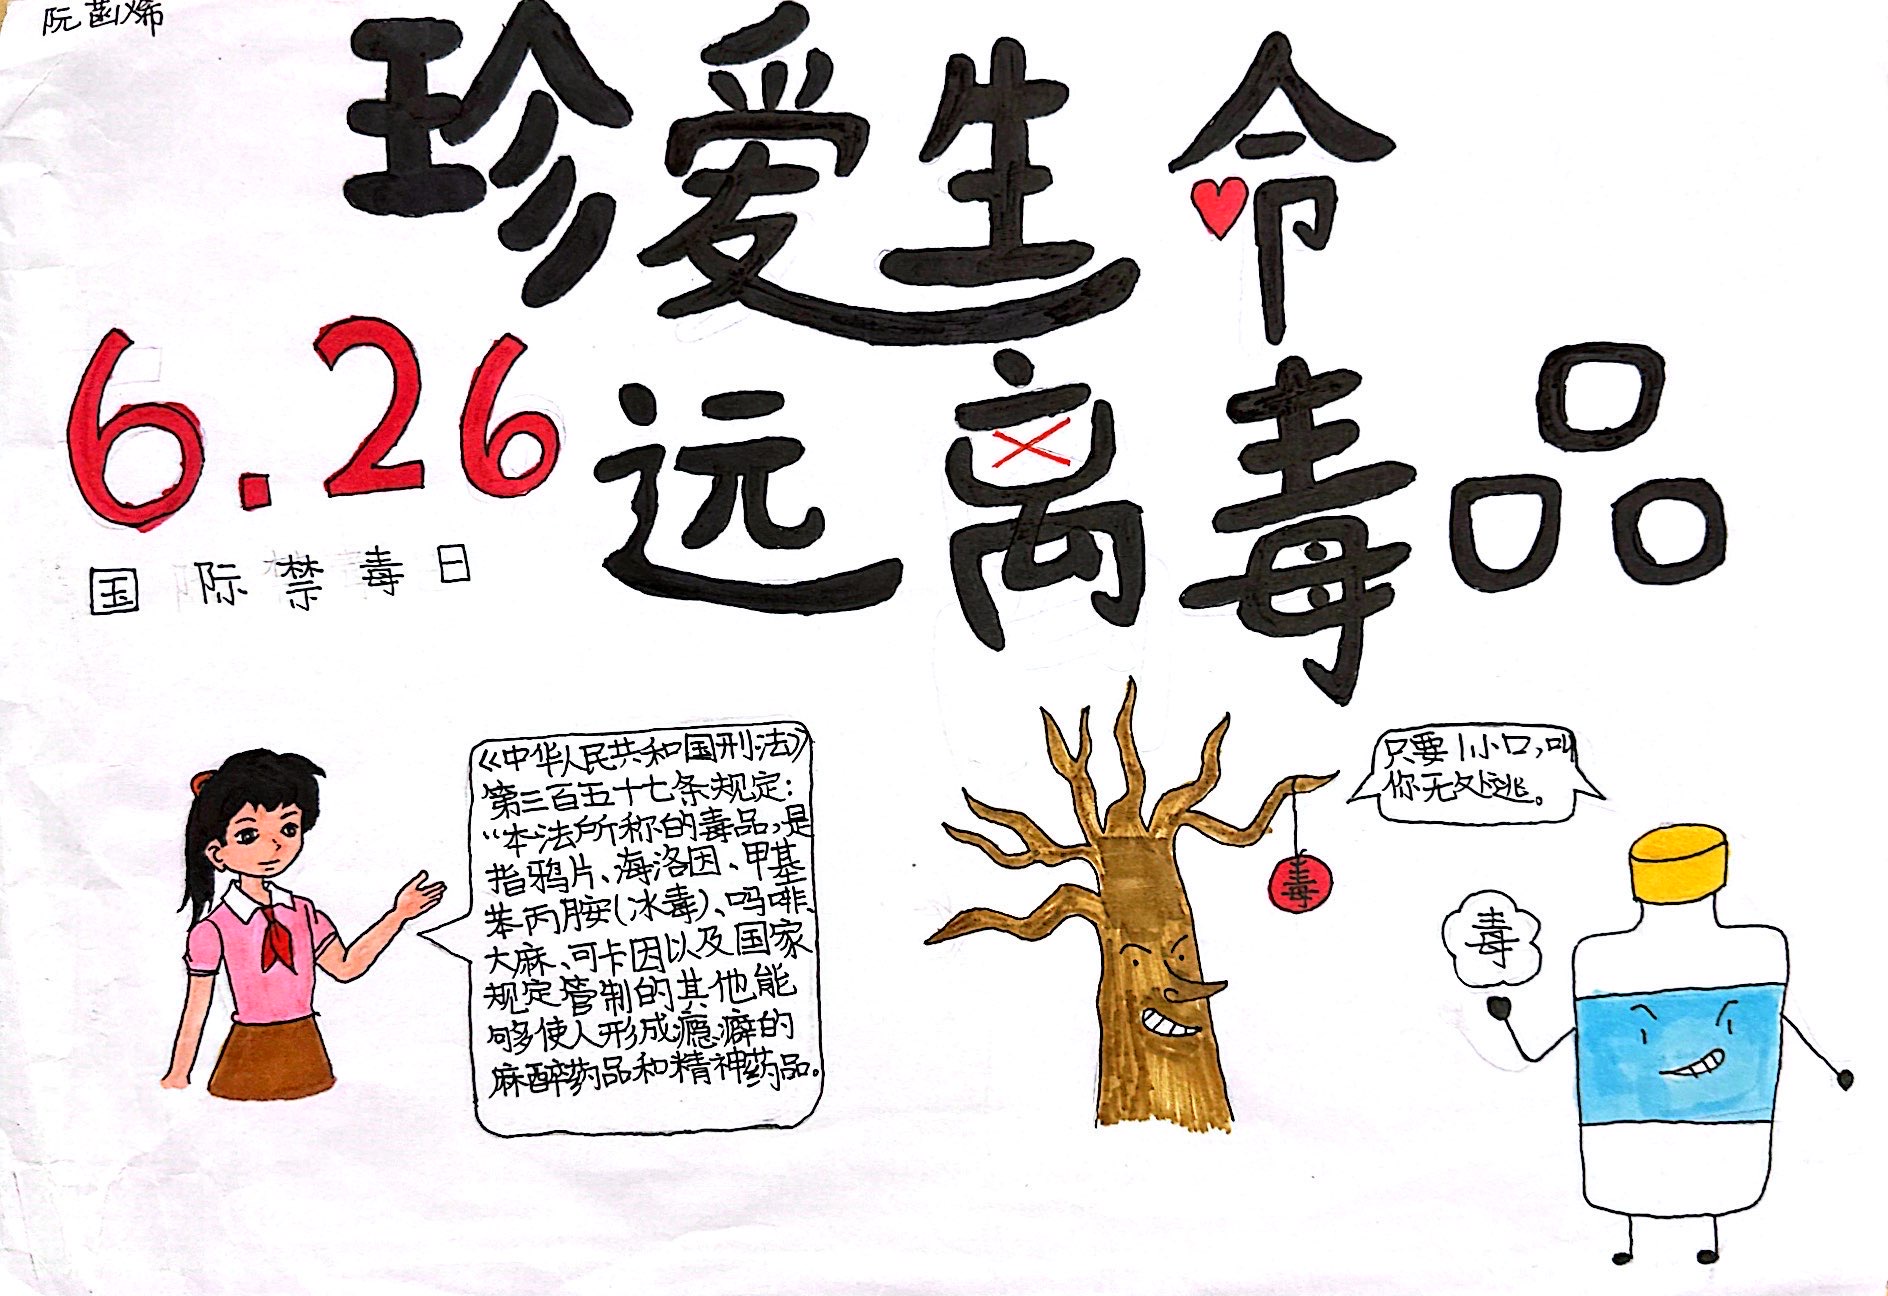 阮菡烯
珍爱生命
6.26
远离毒品
国际禁毒日
《中华人民共和国刑法》
第三百五十七条规定：
“本法所称的毒品，是
指鸦片、海洛因、甲基
苯丙胺（冰毒）、吗啡、
大麻、可卡因以及国家
规定管制的其他能
够使人形成瘾癖的
麻醉药品和精神药品。
只要1小口，叫
你无处逃。
毒
毒